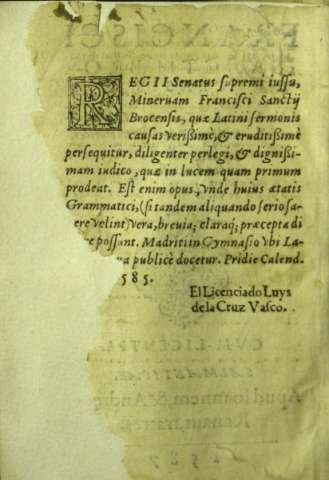 REGII Senatus supremi iussu,
Mineruam Francisci Sanctij
Brocensis, quæ Latini sermonis
causas verissimè, & eruditissimè
persequitur, diligenter perlegi, & dignissi-
mam iudico, quæ in lucem quam primum
prodeat. Est enim opus, vnde huius ætatis
Grammatici, (si tandem aliquando serio sa-
ere velint) vera, breuia, claraq; præcepta di
re possunt. Madriti in Gymnasio vbi La-
a publicè docetur. Pridie Calend.
585.
El Licenciado Luys
de la Cruz Vasco.